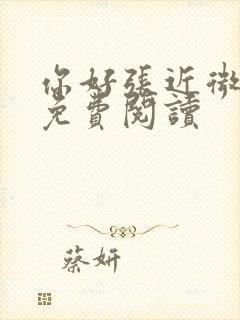 你好張近微
免費閱讀
蔡妍